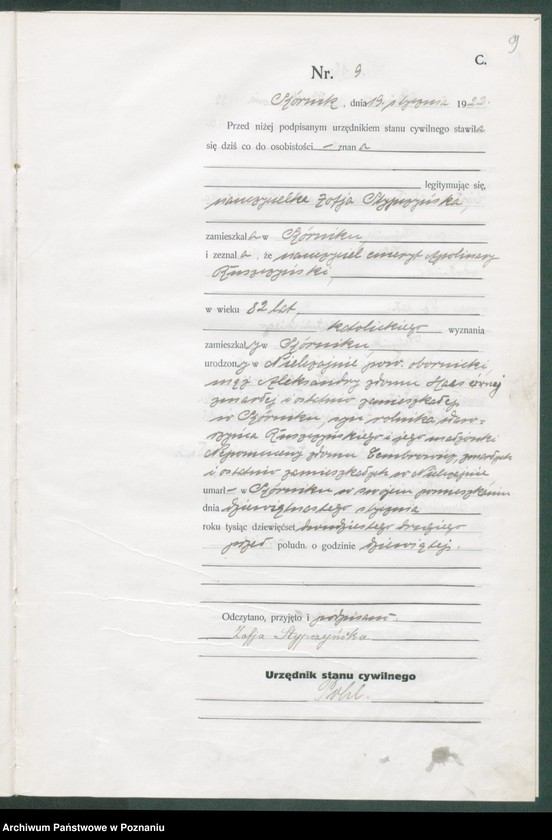 9
C.
Nr. 9
Kórnik, dnia 19. stycznia 1922.
Przed niżej podpisanym urzędnikiem stanu cywilnego stawiła
się dziś co do osobistości — znana
legitymując się,
nauczycielka Zofja Stypczyńska,
zamieszkała w Kórniku,
i zeznała, że nauczyciel emeryt Apolinary
Ruszczyński,
w wieku 82 lat,
katolickiego wyznania
zamieszkały w Kórniku,
urodzony w Nieczajnie pow. obornicki
mąż Aleksandry z domu
zmarłej i ostatnio zamieszkałej
w Kórniku, syn rolnika
Ruszczyńskiego i jego małżonki
Nepomuceny z domu zmarłych
i ostatnio zamieszkałych w Nieczajnie
umarł — w Kórniku w swojem pomieszkaniu
dnia dziewiętnastego stycznia
roku tysiąc dziewięćset dwudziestego drugiego
przed połudn. o godzinie dziewiątej.
Odczytano, przyjęto i podpisano.
Zofja Stypczyńska
Urzędnik stanu cywilnego
Archiwum Państwowe w Poznaniu